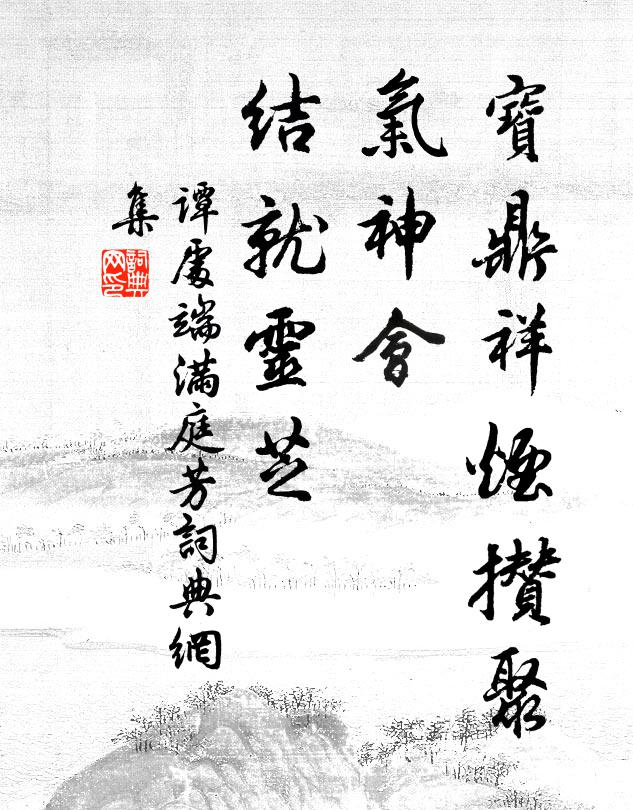 寶鼎祥煙攢聚
氣神會
結就靈芝
譚處端滿庭芳詞典網
集
詞典
网印